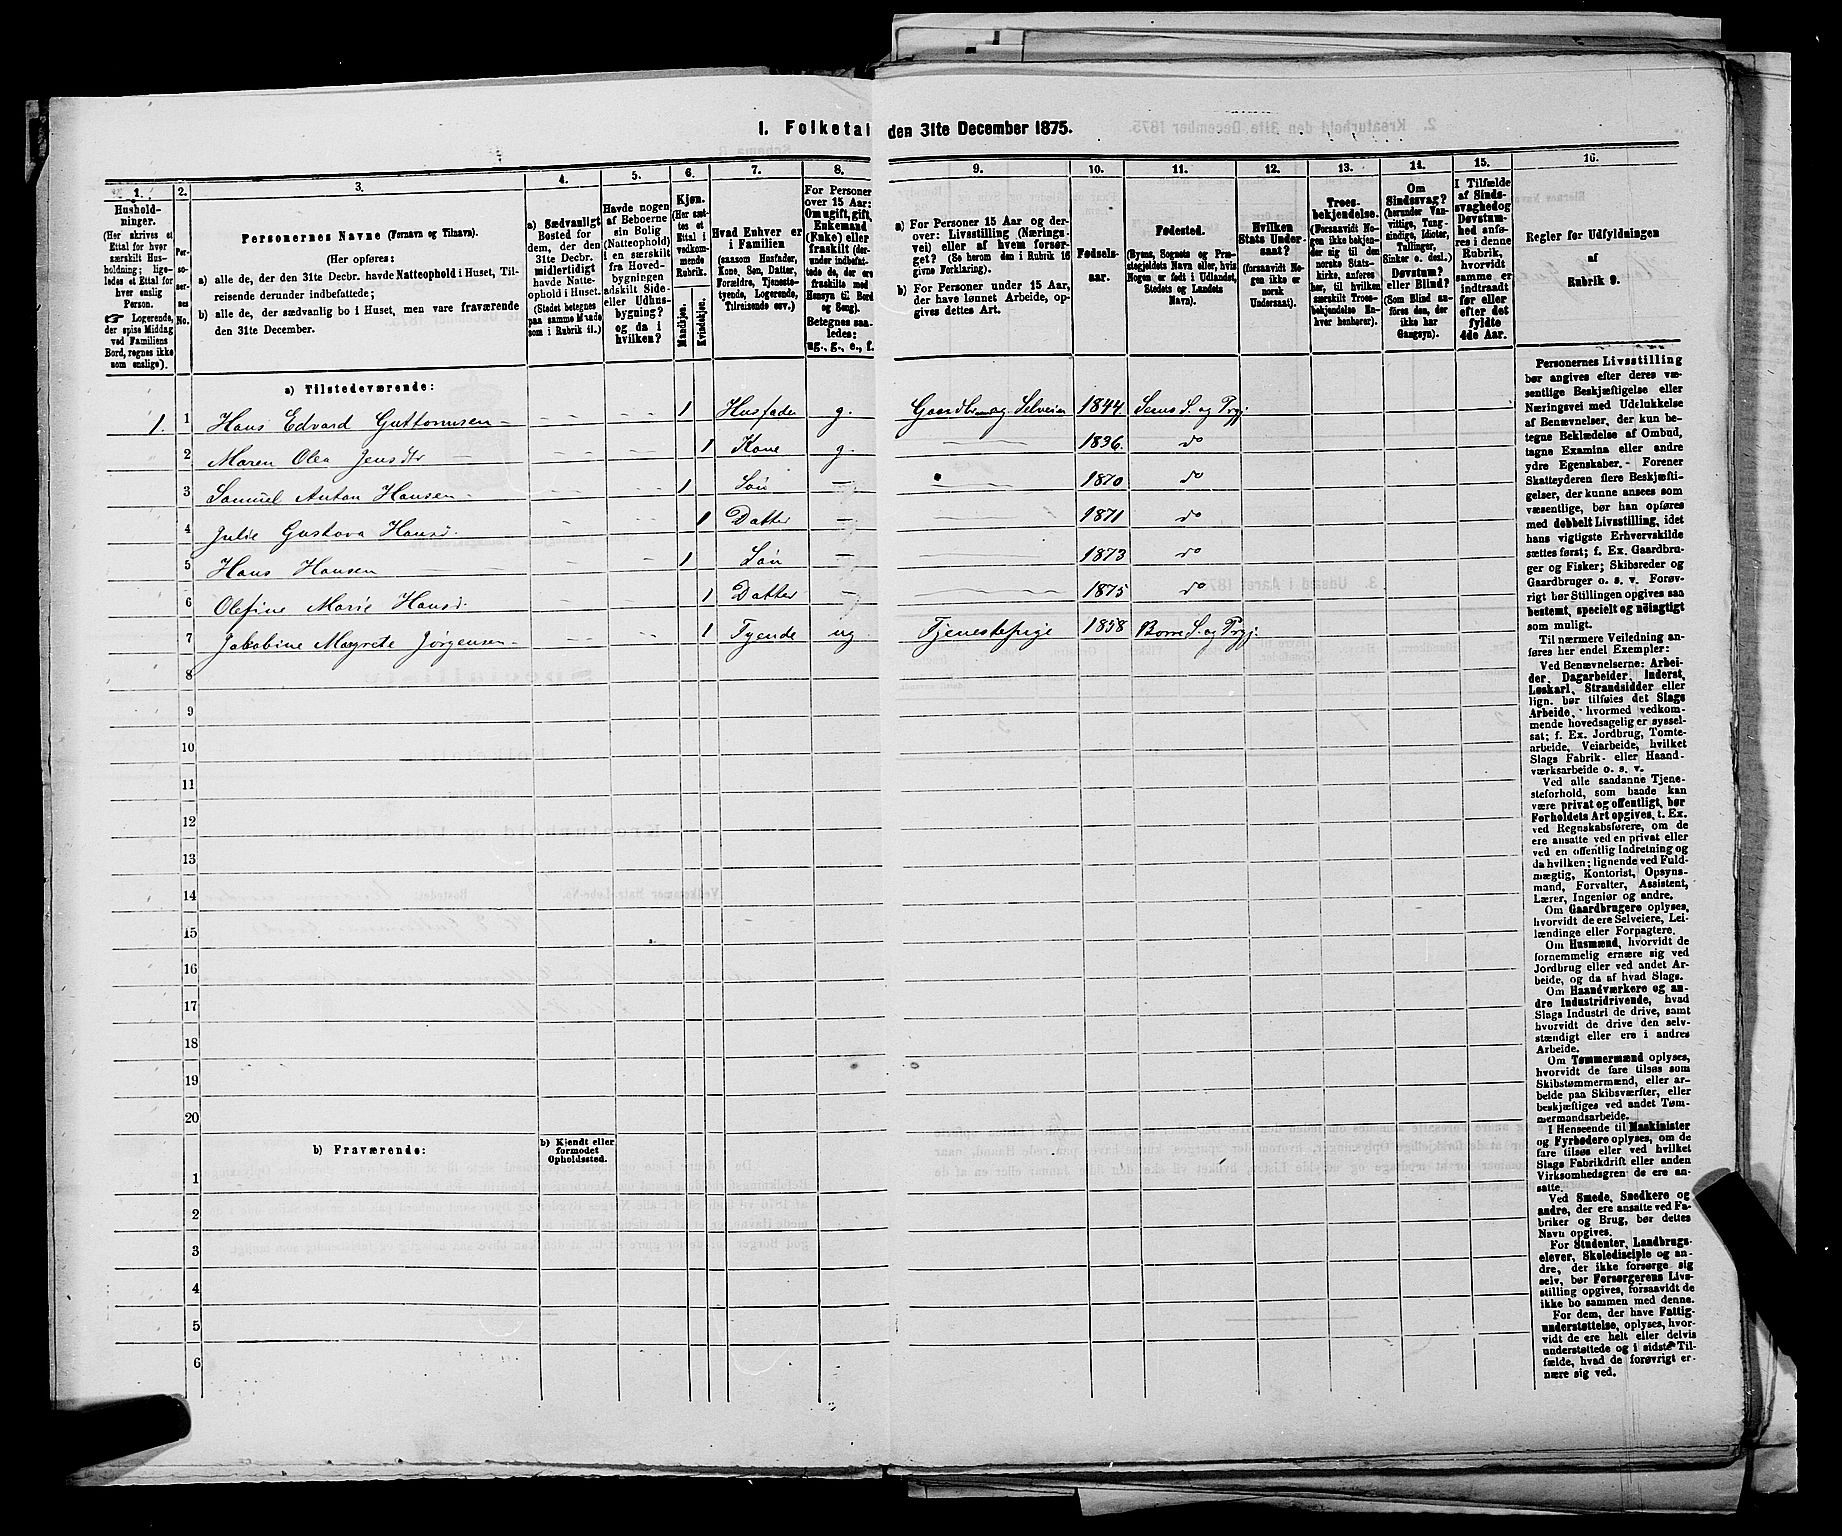 I. Folketal den 31te December 1875.
1.
2.
3.
4.
5.
6.
7.
8.
9.
10.
11.
12.
13.
14.
15.
16.
Husholdninger.
(Her skrives et
Ettal for hver
særskilt Husholdning;
ligeledes et Ettal for
hver enslig
Person.
☞ Logerende,
der spise Middag
ved Familiens
Bord, regnes ikke
som enslige).
Personernes No.
Personernes Navne (Fornavn og Tilnavn).
(Her opføres:
a) alle de, der den 31te Decbr. havde Natteophold i Huset, Tilreisende derunder indbefattede;
b) alle de, der sædvanlig bo i Huset, men vare fraværende
den 31te December.
a) Sædvanligt
Bosted for
dem, der den
31te Decbr.
midlertidigt
havde Natteophold i Huset.
(Stedet betegnes
paa samme Maade
som i Rubrik 11.)
Havde nogen
af Beboerne
sin Bolig
(Natteophold)
i en særskilt
fra Hovedbygningen
adskilt Side-
eller Udhusbygning?
og da i
hvilken?
Kjøn.
(Her sættes et
Ettal i
vedkommende
Rubrik.
Mandkjøn.
Kvindekjøn.
Hvad Enhver er
i Familien
(saasom Husfader,
Kone, Søn, Datter,
Forældre, Tjenestetyende, Logerende,
Tilreisende osv.)
For Personer
over 15 Aar:
Om ugift, gift,
Enkemand
(Enke) eller
fraskilt (derunder indbefattede de, der ere
fraskilte med
Hensyn til Bord
og Seng).
Betegnes saaledes:
ug., g., e., f.
a) For Personer 15 Aar og derover: Livsstilling (Næringsvei) eller af hvem forsørget? (Se herom den i Rubrik 16
givne Forklaring).
b) For Personer under 15 Aar,
der have lønnet Arbeide, opgives dettes Art.
Fødselsaar.
Fødested.
(Byens, Sognets og Præstegjeldets Navn eller, hvis
Nogen er født i Udlandet,
Stedets og Landets
Navn).
Hvilken
Stats Undersaat?
(forsaavidt Nogen ikke er
norsk
Undersaat).
Troesbekjendelse.
(Forsaavidt Nogen ikke bekjender sig til den
norske Statskirke, anføres
her, til hvilken
særskilt Troesbekjendelse Enhver henhører).
Om
Sindssvag?
(herunder Vanvittige, Tungsindige, Idioter,
Tullinger,
Sinker o. desl.)
Døvstum?
eller Blind?
(Som Blind anføres den, der
ikke har
Gangsyn).
I Tilfælde
af Sindssvaghed og
Døvstumhed anføres i denne
Rubrik,
hvorvidt
samme er
indtraadt
før eller
efter det
fyldte
4de Aar.
Regler for Udfyldningen
af
Rubrik 9.
a) Tilstedeværende:
1. 1 Hans Edvard Guttormsen 1 Husfader g. Gaardbruger Selveier 1844 Sems S. og Prgj.
2 Maren Olea Jensdtr 1 Kone g. 1836. do
3 Samuel Anton Hansen 1 Søn 1870 do
4 Julie Gustava Hansd. 1 Datter 1871 do
5 Hans Hansen 1 Søn 1873 do
6 Olefine Marie Hansd. 1 Datter 1875 do
7 Jakobine Margrete Jørgensen 1 Tyende ug Tjenestepige 1858 Borre S. og Prgj.
8
9
10
11
12
13
14
15
16
17
18
19
20
b) Fraværende:
b) Kjendt eller
formodet
Opholdssted.
1
2
3
4
5
6
Personernes Livsstilling
bør angives efter deres væsentlige Beskjæftigelse eller
Næringsvei med Udelukkelse
af Benævnelser, der kun betegne Beklædelse af Ombud,
tagne Examina eller andre
ydre Egenskaber. - Forener
Skatteyderen flere Beskjæftigelser, der kunne ansees som
væsentlige, bør han opføres
med dobbelt Livsstilling, idet
hans vigtigste Erhvervskilde
sættes først; f. Ex. Gaardbruger og Fisker; Skibsreder og
Gaardbruger o. s. v. Forøvrigt bør Stillingen opgives saa
bestemt, specielt og nöiagtigt
som muligt.
Til nærmere Veiledning anføres her endel Exempler:
Ved Benævnelserne: Arbeider, Dagarbeider, Inderst,
Løskarl, Strandsidder eller
lign. bør tilføies det Slags
Arbeide, hvormed vedkommende hovedsagelig er sysselsat; f. Ex. Jordbrug, Tomtearbeide, Veiarbeide, hvilket
Slags Fabrik- eller Haandværksarbeide o. s. v.
Ved alle saadanne Tjenesteforhold, som baade kan
være privat og offentligt, bør
Forholdets Art opgives, t. Ex.
ved Regnskabsførere, om de
ere ansatte ved en privat eller
ved en offentlig Indretning og
da hvilken; lignende ved Fuldmægtig, Kontorist, Opsynsmand, Forvalter, Assistent,
Lærer, Ingeniør og andre.
Om Gaardbrugere oplyses,
hvorvidt de ere Selveiere, Leilændinge eller Forpagtere.
Om Husmænd, hvorvidt de
fornemmelig ernære sig ved
Jordbrug eller ved andet Arbeide, og da af hvad Slags.
Om Haandværkere og andre Industridrivende, hvad
Slags Industri de drive, samt
hvorvidt de drive den selvstændigt eller ere i andres
Arbeide.
Om Tømmermænd oplyses,
hvorvidt de fare tilsøs som
Skibstømmermænd, eller arbeide paa Skibsværfter, eller
beskjæftiges ved andet Tømmermandsarbeide.
I Henseende til Maskinister
og Fyrbødere oplyses, om de
fare tilsøs eller ved hvilket
Slags Fabrikdrift eller anden
Virksomhedsgren de ere ansatte.
Ved Smede, Snedkere og
andre, der ere ansatte ved Fabriker og Brug, bør dettes
Navn opgives.
For Studenter, Landbrugselever, Skoledisciple og andre, der ikke forsørge sig
selv, bør Forsørgerens Livsstilling opgives, forsaavidt de
ikke bo sammen med denne.
For dem, der have Fattigunderstøttelse, oplyses, hvorvidt de ere helt eller delvis
understøttede og i sidste Tilfælde, hvad de forøvrigt ernære sig ved.